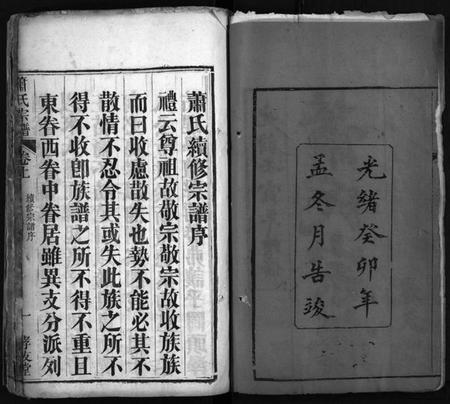 光緒癸卯年
孟冬月告竣
蕭氏續修宗譜序
禮云尊祖故敬宗敬宗故收族族
而曰收慮散失也勢不能必其不
散情不忍令其或失此族之所不
得不收卽族譜之所不得不重且
東眷西眷中眷居雖異支分派列
蕭氏宗譜
卷首
續修宗譜序
一
孝友堂